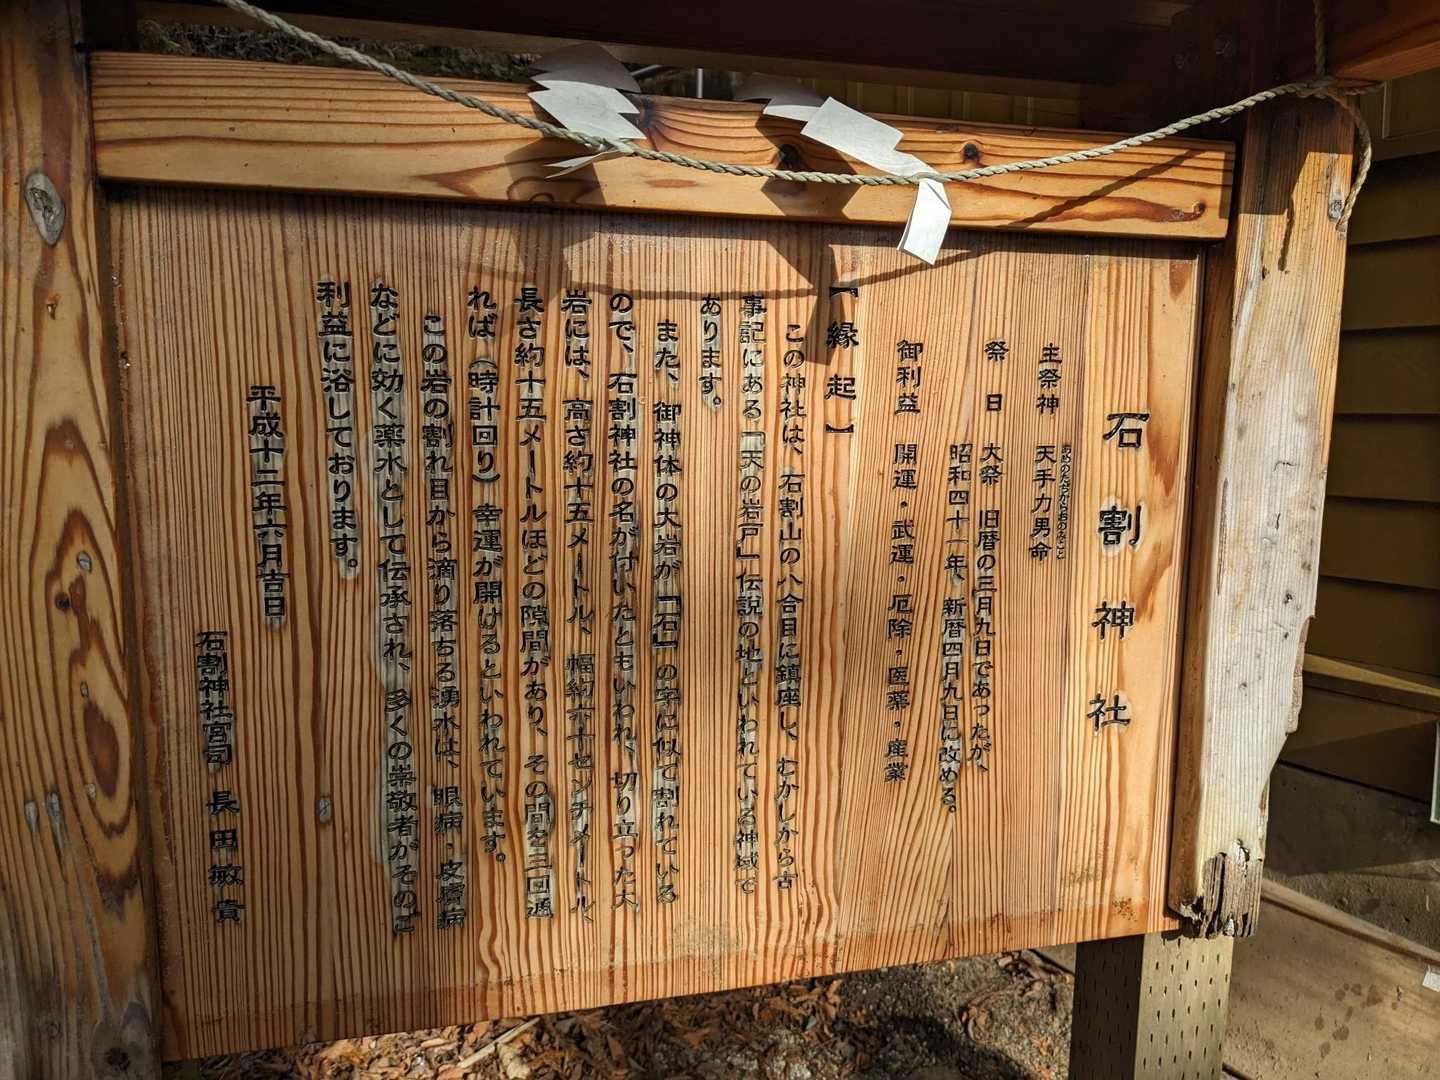 石割神社
主祭神　天手力男命
あめのたぢからおのみこと
祭　日　大祭　旧暦の三月九日であったが、
昭和四十一年、新暦四月九日に改める。
御利益　開運・武運・厄除・医薬・産業
【縁起】
この神社は、石割山の八合目に鎮座し、むかしから古
事記にある「天の岩戸」伝説の地といわれている神域で
あります。
また、御神体の大岩が「石」の字に似て割れている
ので、石割神社の名が付いたともいわれ、切り立った大
岩には、高さ約十五メートル、幅約六十センチメートル、
長さ約十五メートルほどの隙間があり、その間を三回通
れば（時計回り）幸運が開けるといわれています。
この岩の割れ目から滴り落ちる湧水は、眼病・皮膚病
などに効く薬水として伝承され、多くの崇敬者がそのご
利益に浴しております。
平成十二年六月吉日
石割神社宮司　長田敏貴